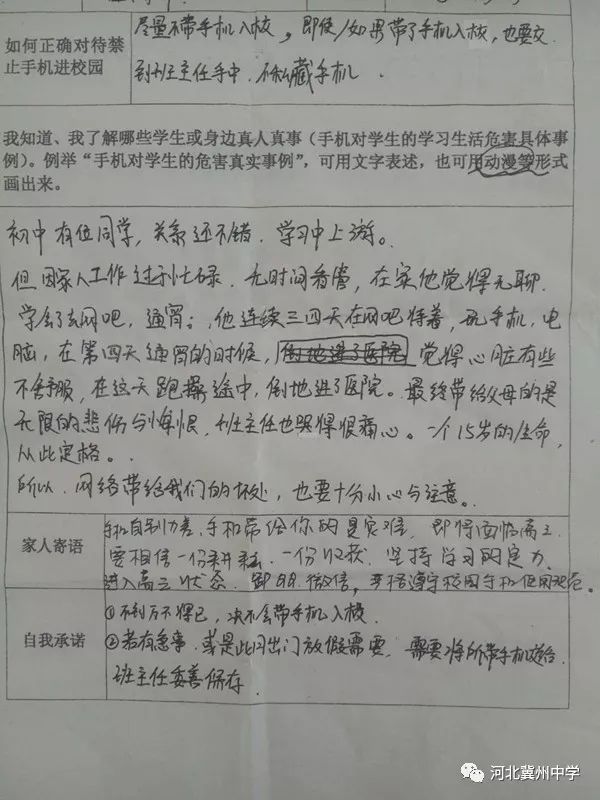 如何正确对待禁
止手机进校园
尽量不带手机入校，即使/如果带了手机入校，也要交
到班主任手中，不私藏手机．
我知道、我了解哪些学生或身边真人真事（手机对学生的学习生活危害具体事
例）。例举“手机对学生的危害真实事例”，可用文字表述，也可用动漫等形式
画出来。
初中有位同学，关系还不错．学习中上游。
但因家人工作过于忙碌．无时间看管，在家他觉得无聊．
学会了去网吧，通宵；他连续三四天在网吧待着，玩手机，电
脑，在第四天通宵的时候，倒地进了医院 觉得心脏有些
不舒服，在这天跑操途中，倒地进了医院。最终带给父母的是
无限的悲伤与悔恨，班主任也哭得很痛心。一个15岁的生命，
从此定格。
所以．网络带给我们的坏处，也要十分小心与注意。
家人寄语
自制力差，手机带给你的是灾难，即将面临高三．
要相信一份耕耘．一份收获．坚持学习的定力．
进入高三状态．卸QQ．微信，严格遵守校园手机使用规范。
自我承诺
①不到万不得已，决不会带手机入校．
②若有急事．或是出门放假需要．需要将所带手机送给
班主任妥善保存．
河北冀州中学